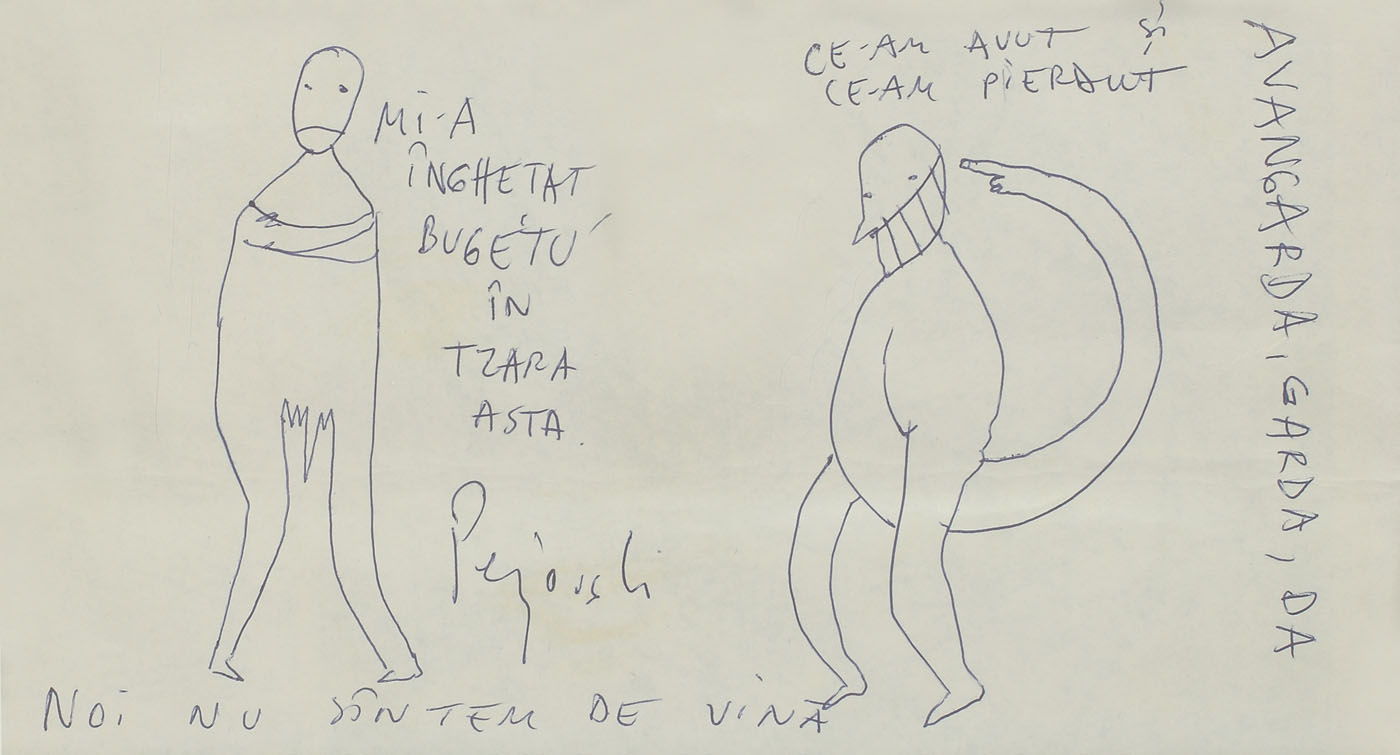 MI-A
ÎNGHETAT
BUGÉTU'
ÎN
TZARA
ASTA.
CE-AM AVUT și
CE-AM PIERDUT
AVANGARDA, GARDA, DA
NOI NU SÎNTEM DE VINĂ